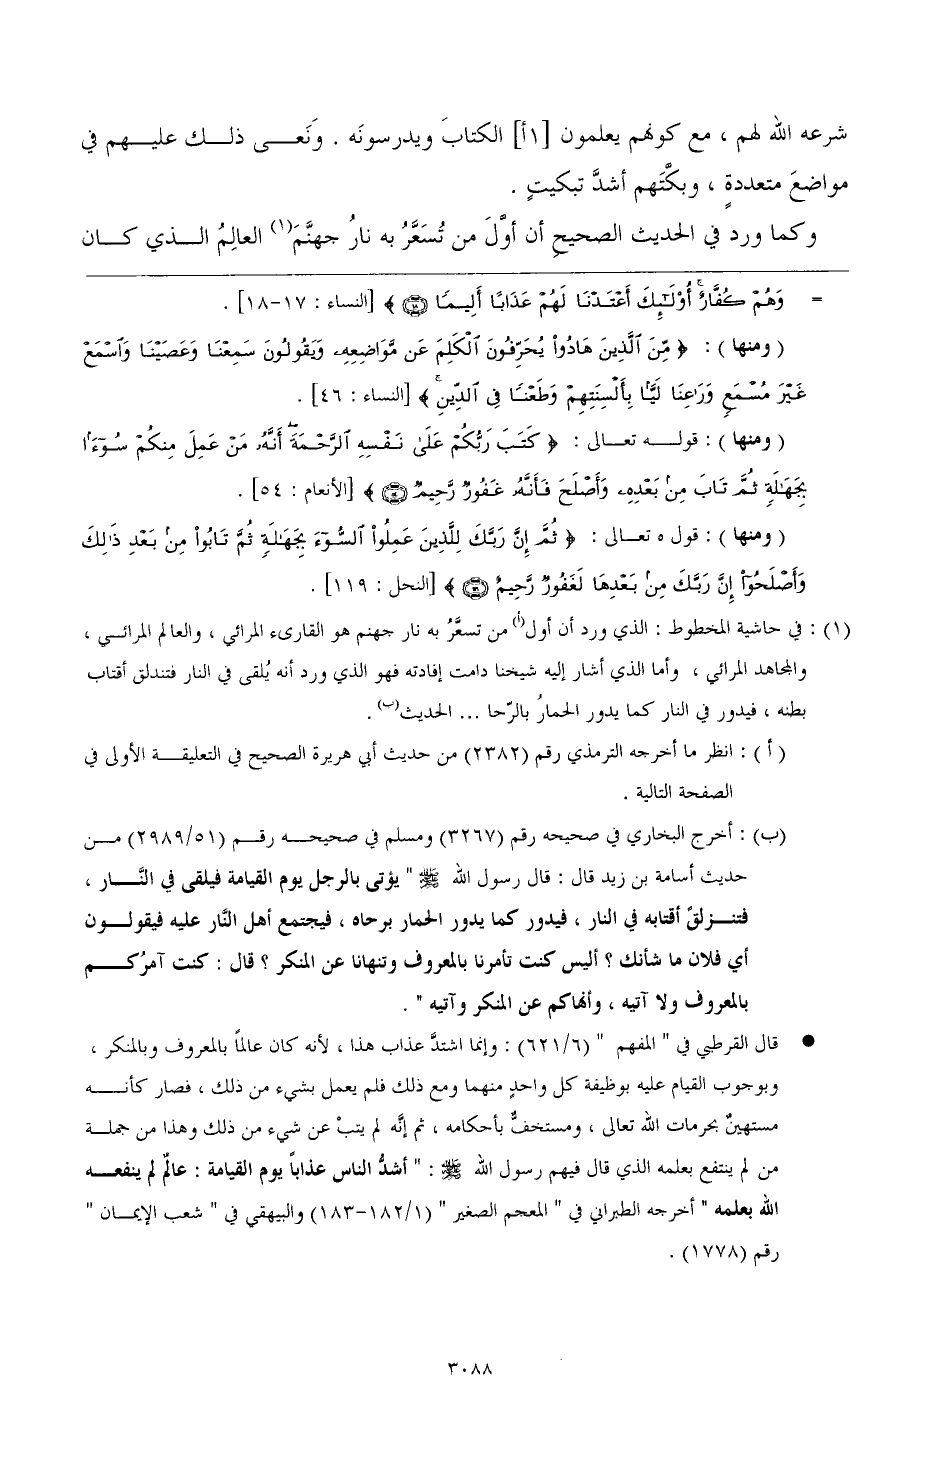 شرعه الله لهم ، مع كونهم يعلمون [١أ] الكتابَ ويدرسونَه . ونَعــى ذلــك عليــهم في
مواضعَ متعددةٍ ، وبكَّتَهم أشدَّ تبكيتٍ .
وكما ورد في الحديث الصحيح أن أولَّ من تُسعَّرُ به نارُ جهنَّمَ(١) العالِمُ الــذي كــان
= وَهُمْ كُفَّارٌ أُوْلَٰٓئِكَ أَعْتَدْنَا لَهُمْ عَذَابًا أَلِيمًا ۝١٨ ﴾ [النساء : ١٧-١٨] .
( ومنها ) : ﴿ مِّنَ ٱلَّذِينَ هَادُوا۟ يُحَرِّفُونَ ٱلْكَلِمَ عَن مَّوَاضِعِهِۦ وَيَقُولُونَ سَمِعْنَا وَعَصَيْنَا وَٱسْمَعْ
غَيْرَ مُسْمَعٍ وَرَٰعِنَا لَيًّۢا بِأَلْسِنَتِهِمْ وَطَعْنًا فِى ٱلدِّينِ ۚ ﴾ [النساء : ٤٦] .
( ومنها ) : قولــه تعــالى : ﴿ كَتَبَ رَبُّكُمْ عَلَىٰ نَفْسِهِ ٱلرَّحْمَةَ ۖ أَنَّهُۥ مَنْ عَمِلَ مِنكُمْ سُوٓءًۢا
بِجَهَٰلَةٍ ثُمَّ تَابَ مِنۢ بَعْدِهِۦ وَأَصْلَحَ فَأَنَّهُۥ غَفُورٌ رَّحِيمٌ ۝٥٤ ﴾ [الأنعام : ٥٤] .
( ومنها ) : قول ه تعــالى : ﴿ ثُمَّ إِنَّ رَبَّكَ لِلَّذِينَ عَمِلُوا۟ ٱلسُّوٓءَ بِجَهَٰلَةٍ ثُمَّ تَابُوا۟ مِنۢ بَعْدِ ذَٰلِكَ
وَأَصْلَحُوٓا۟ إِنَّ رَبَّكَ مِنۢ بَعْدِهَا لَغَفُورٌ رَّحِيمٌ ۝١١٩ ﴾ [النحل : ١١٩] .
(١) : في حاشية المخطوط : الذي ورد أن أول(أ) من تسعَّرُ به نار جهنم هو القارىء المرائي ، والعالم المرائــي ،
والمجاهد المرائي ، وأما الذي أشار إليه شيخنا دامت إفادته فهو الذي ورد أنه يُلقى في النار فتندلق أقتاب
بطنه ، فيدور في النار كما يدور الحمارُ بالرّحا ... الحديث(ب) .
( أ ) : انظر ما أخرجه الترمذي رقم (٢٣٨٢) من حديث أبي هريرة الصحيح في التعليقــة الأولى في
الصفحة التالية .
(ب) : أخرج البخاري في صحيحه رقم (٣٢٦٧) ومسلم في صحيحــه رقــم (٢٩٨٩/٥١) مــن
حديث أسامة بن زيد قال : قال رسول الله ﷺ " يؤتى بالرجل يوم القيامة فيلقى في النَّــار ،
فتنــزلقُ أقتابه في النار ، فيدور كما يدور الحمار برحاه ، فيجتمع أهل النَّار عليه فيقولــون
أي فلان ما شأنك ؟ أليس كنت تأمرنا بالمعروف وتنهانا عن المنكر ؟ قال : كنت آمرُكــم
بالمعروف ولا آتيه ، وأنهاكم عن المنكر وآتيه " .
● قال القرطبي في " المفهم " (٦٢١/٦) : وإنما اشتدَّ عذاب هذا ، لأنه كان عالماً بالمعروف وبالمنكر ،
وبوجوب القيام عليه بوظيفة كل واحدٍ منهما ومع ذلك فلم يعمل بشيء من ذلك ، فصار كأنــه
مستهينٌ بحرمات الله تعالى ، ومستخفٌّ بأحكامه ، ثم إنَّه لم يتبْ عن شيء من ذلك وهذا من جملــة
من لم ينتفع بعلمه الذي قال فيهم رسول الله ﷺ : " أشدُّ الناس عذاباً يوم القيامة : عالمٌ لم ينفعــه
الله بعلمه " أخرجه الطبراني في " المعجم الصغير " (١٨٢/١-١٨٣) والبيهقي في " شعب الإيمــان "
رقم (١٧٧٨) .
٣٠٨٨